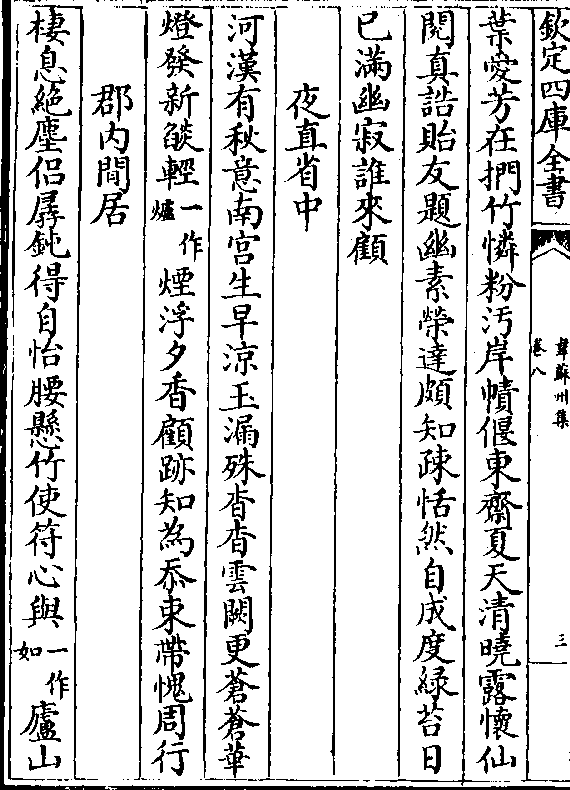 欽定四庫全書
韋蘇州集
卷八
三
葉愛芳在捫竹憐粉汚岸幘偃東齋夏天清曉露懷仙
閱真誥貽友題幽素榮達頗知疎恬然自成度緑苔日
已滿幽寂誰來顧
夜直省中
河漢有秋意南宮生早涼玉漏殊杳杳雲闕更蒼蒼華
燈發新燄輕一作爐煙浮夕香顧跡知為忝束帶愧周行
郡内閒居
棲息絶塵侣孱鈍得自怡腰懸竹使符心與一作如廬山